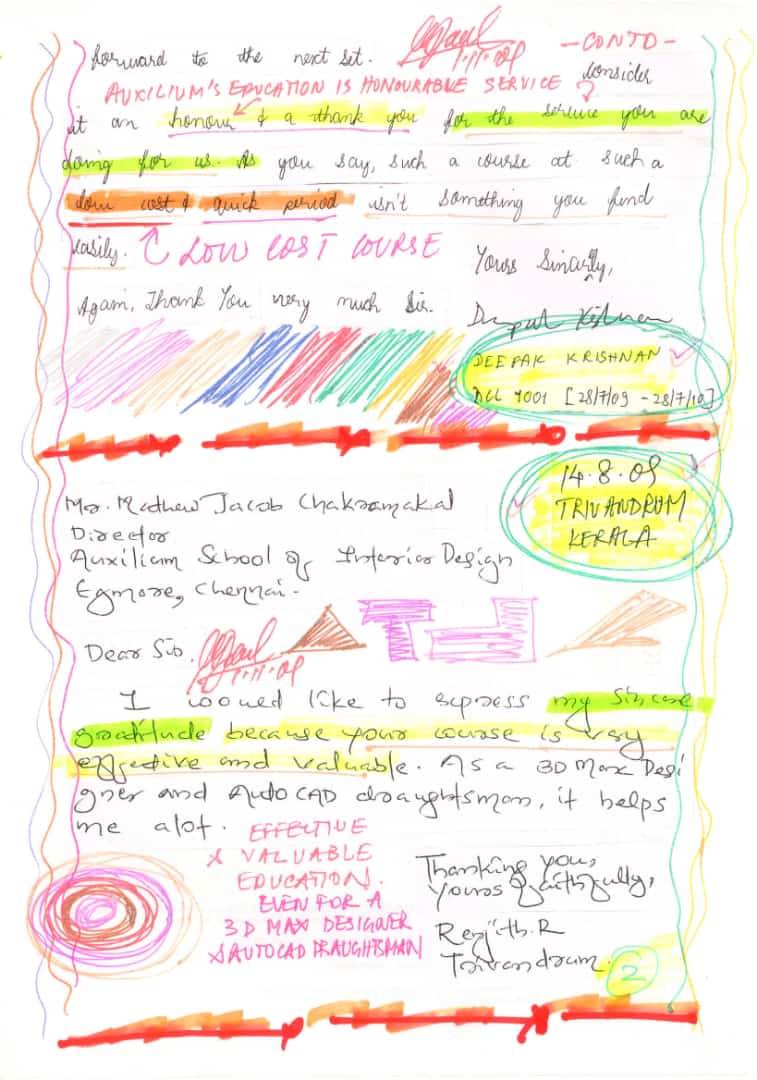 forward to the next set.
1.11.09
-CONTD-
AUXILIUM'S EDUCATION IS HONOURABLE SERVICE
consider
it an honour & a thank you for the service you are
doing for us. As you say, such a course at such a
low cost & quick period isn't something you find
easily. LOW COST COURSE
Yours Sincerly,
Again, Thank You very much Sir.
DEEPAK KRISHNAN
DCL 9001 [28/7/09 - 28/7/10]
14.8.09
TRIVANDRUM
KERALA
Mr. Mathew Jacob Chakramakal
Director
Auxilium School of Interior Design
Egmore, Chennai.
Dear Sir.
1.11.09
I woued like to express my sincere
gratitude because your course is very
effective and valuable. As a 3D Max Desi
gner and AutoCAD draughtsman, it helps
me alot.
EFFECTIVE
& VALUABLE
EDUCATION.
EVEN FOR A
3D MAX DESIGNER
& AUTOCAD DRAUGHTSMAN
Thanking you,
yours faithfully,
Renjith.R
Trivandrum.
2